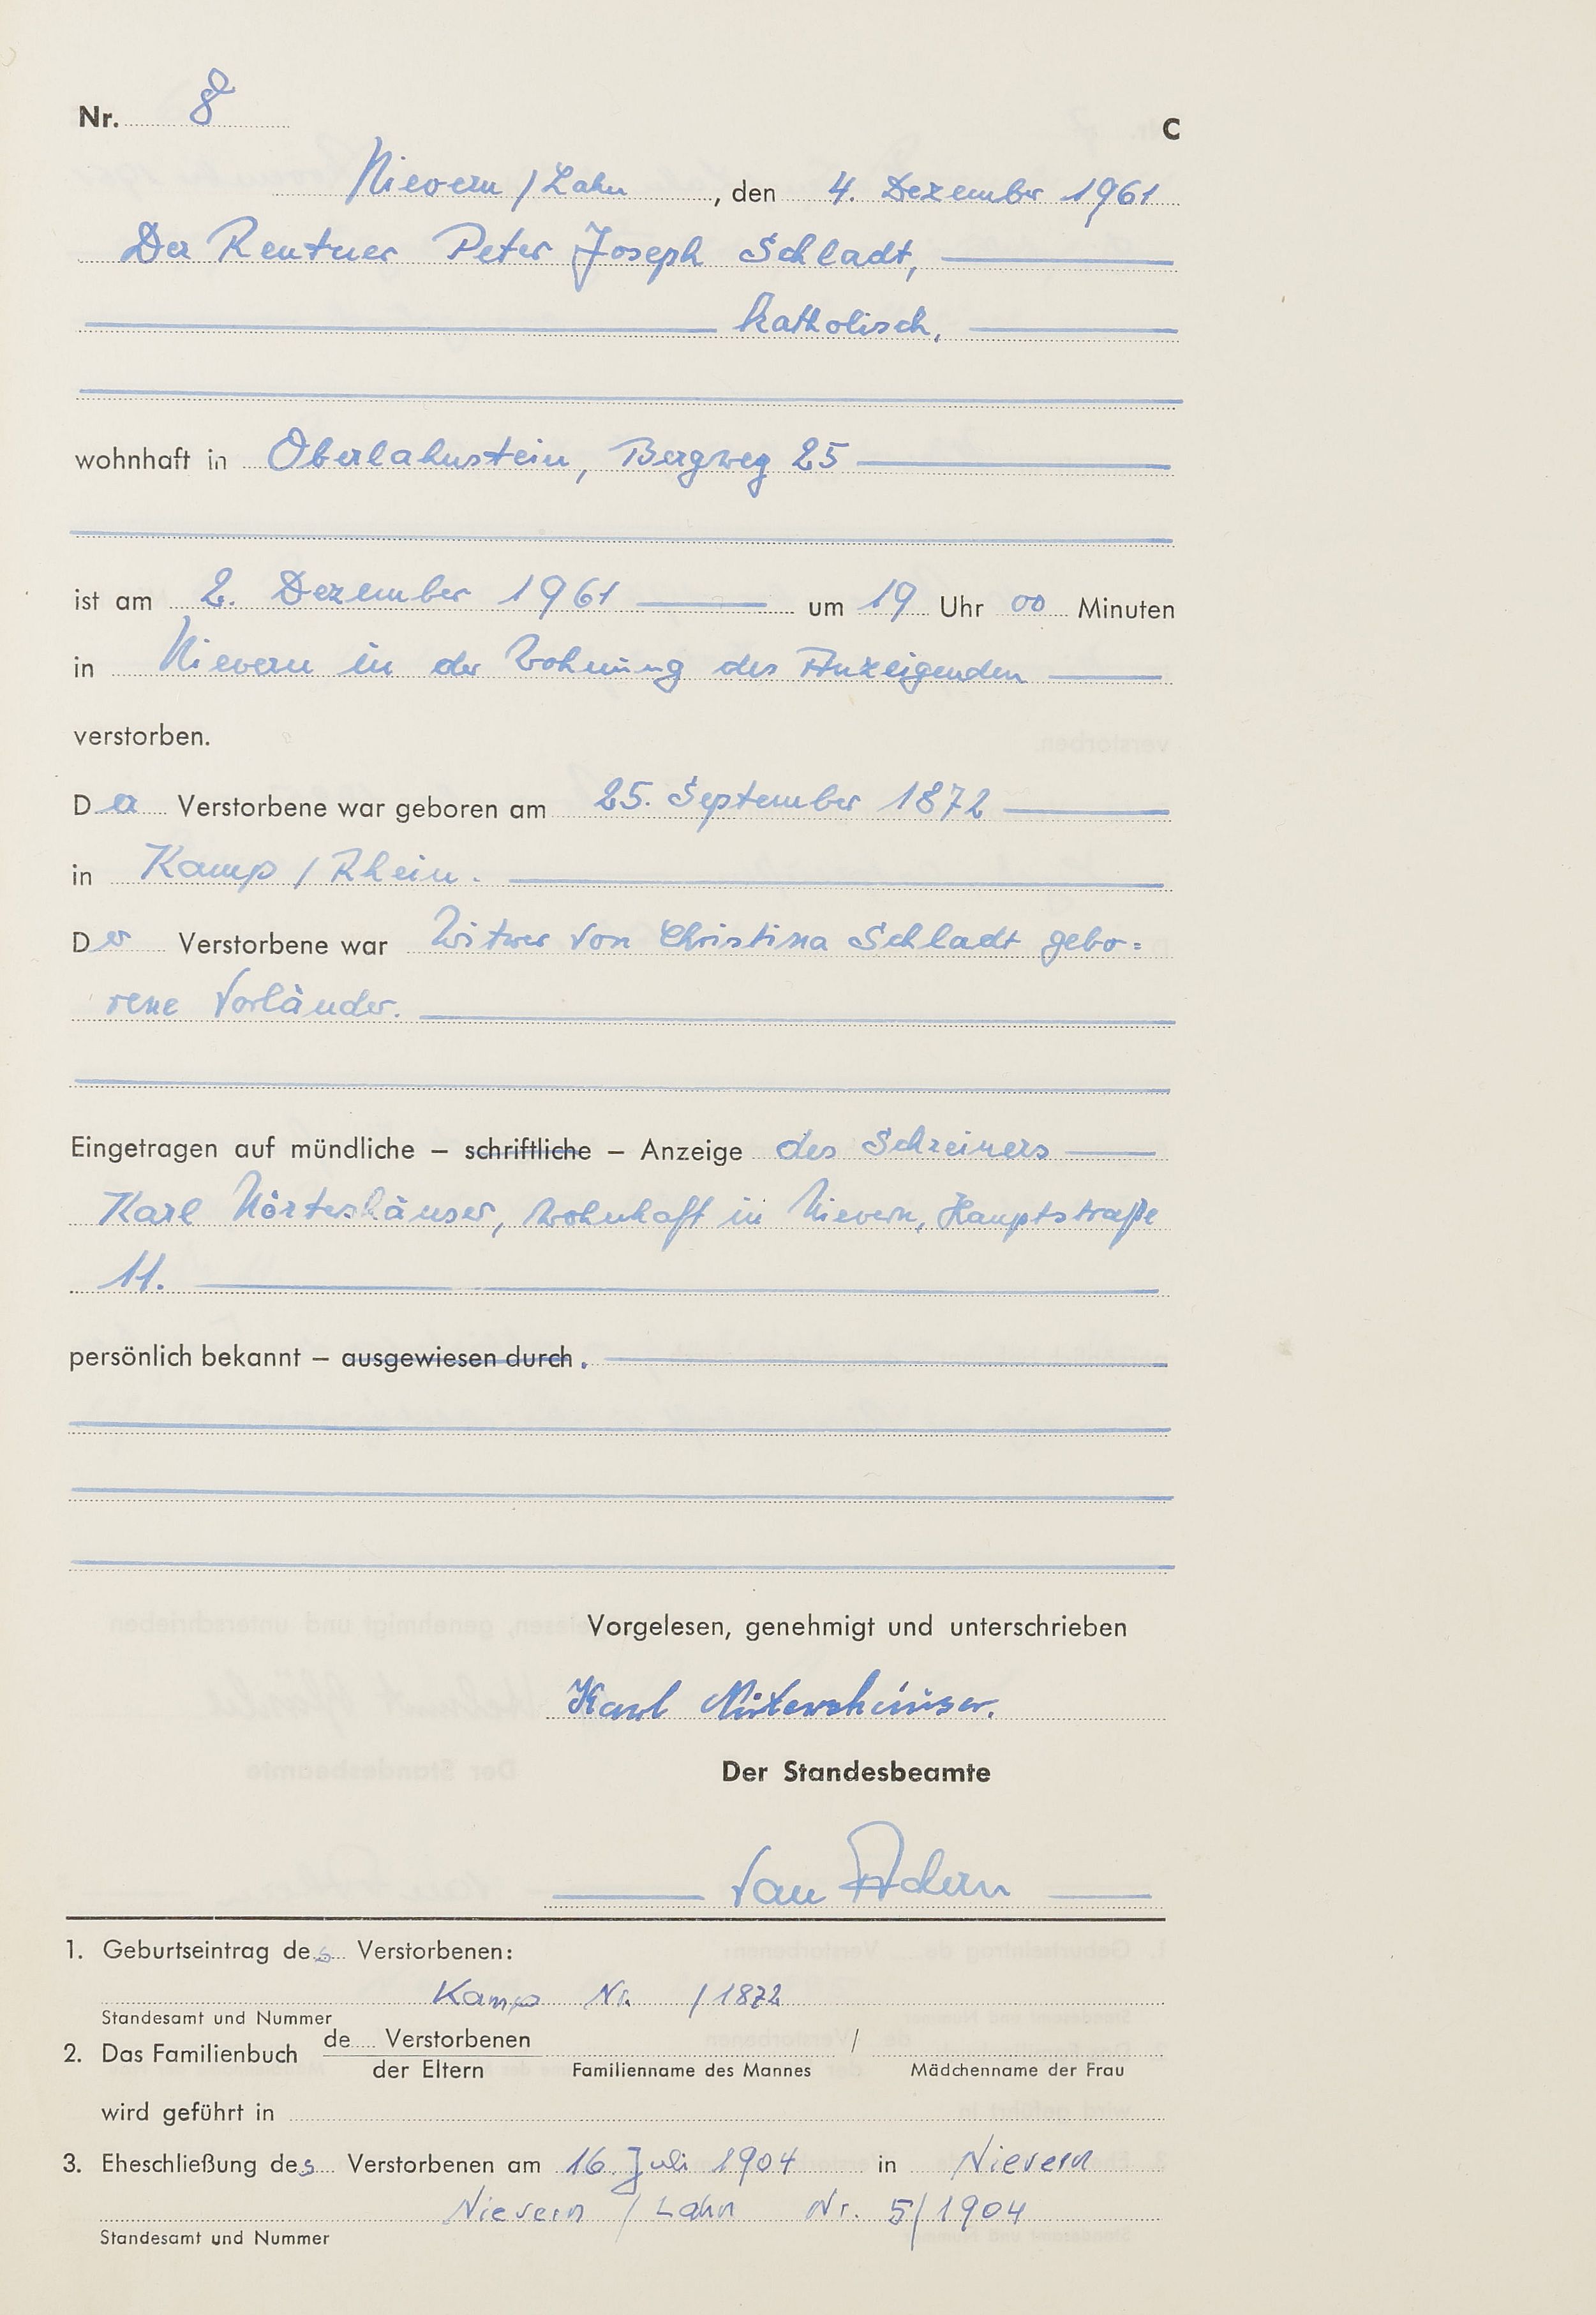 Nr. 8
C
Nievern / Lahn, den 4. Dezember 1961
Der Rentner Peter Joseph Schladt,
katholisch,
wohnhaft in Oberlahnstein, Bergweg 25
ist am 2. Dezember 1961 um 19 Uhr 00 Minuten
in Nievern in der Wohnung des Anzeigenden
verstorben.
Der Verstorbene war geboren am 25. September 1872
in Kamp / Rhein.
Der Verstorbene war Witwer von Christina Schladt gebo=
rene Vorländer.
Eingetragen auf mündliche – schriftliche – Anzeige des Schreiners
Karl Nörtershäuser, wohnhaft in Nievern, Hauptstraße
11.
persönlich bekannt – ausgewiesen durch.
Vorgelesen, genehmigt und unterschrieben
Karl Nörtershäuser.
Der Standesbeamte
1. Geburtseintrag des Verstorbenen:
Kamp Nr. /1872
Standesamt und Nummer
2. Das Familienbuch de Verstorbenen /
der Eltern Familienname des Mannes Mädchenname der Frau
wird geführt in
3. Eheschließung des Verstorbenen am 16. Juli 1904 in Nievern
Nievern / Lahn Nr. 5/1904
Standesamt und Nummer